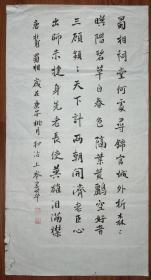 蜀相祠堂何處尋錦官城外柏森々
映階碧草自春色隔葉黄鸝空好音
三顧頻々天下計兩朝開濟老臣心
出師未捷身先老長使英雄泪滿襟
唐杜甫蜀相 歲在庚午桃月